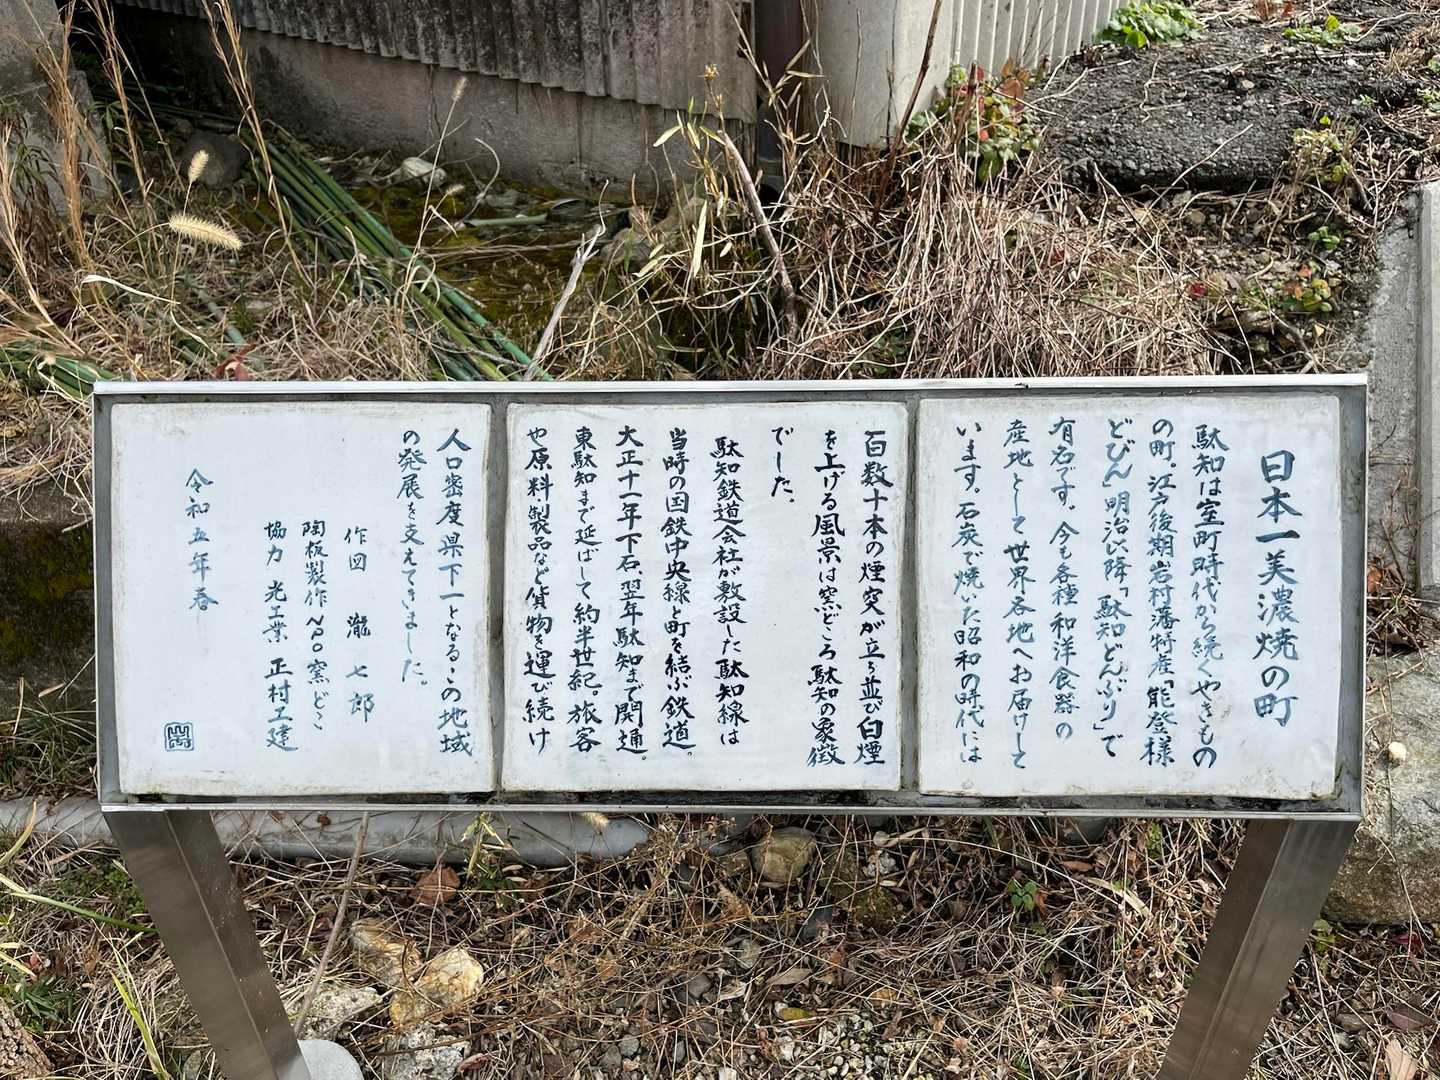 日本一美濃焼の町
駄知は室町時代から続くやきもの
の町。江戸後期岩村藩特産「能登様
どびん」明治以降「駄知どんぶり」で
有名です。今も各種和洋食器の
産地として世界各地へお届けして
います。石炭で焼いた昭和の時代には
百数十本の煙突が立ち並び白煙
を上げる風景は窯どころ駄知の象徴
でした。
駄知鉄道会社が敷設した駄知線は
当時の国鉄中央線と町を結ぶ鉄道。
大正十一年下石、翌年駄知まで開通。
東駄知まで延ばして約半世紀。旅客
や原料・製品など貨物を運び続け
人口密度県下一となるこの地域
の発展を支えてきました。
作図 瀧 七郎
陶板製作 NPO窯どこ
協力 光工業 正村工建
令和五年春